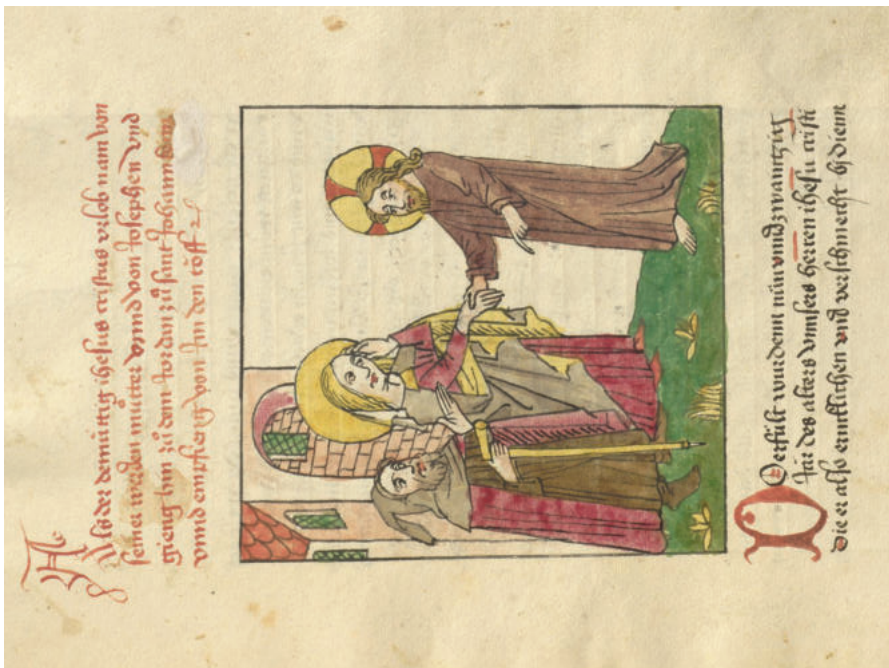 Als der demüttig ihesus cristus vrlob nam von
seiner werden můtter vnnd von Josephen vnd
gieng hin zů dem Jordan zů sant Johannsen
vnnd empfieng von Im den töff
Derfült wurdent nün vnndzwaintzig
Jär des alters vnnsers herren ihesu cristi
die er also ernstlichen vnd verschmecht